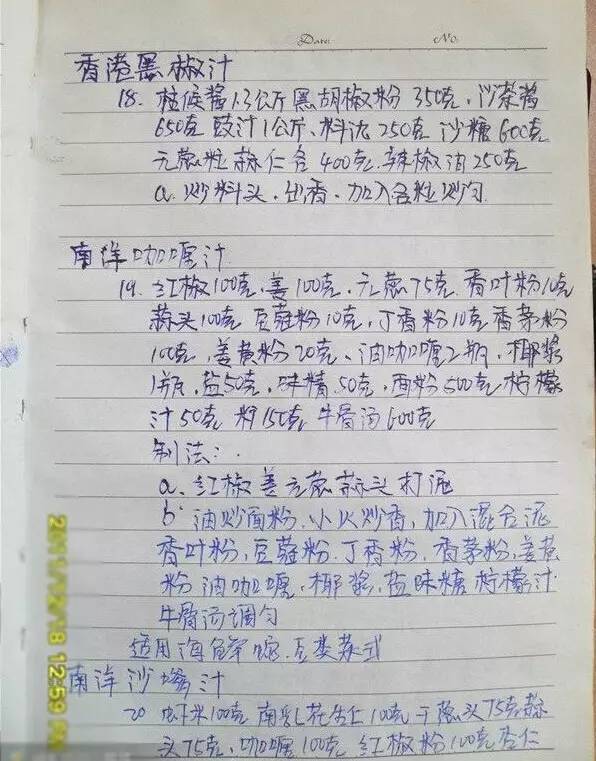 Date: No.
香港黑椒汁
18. 柱候酱1.3公斤黑胡椒粉350克、沙茶酱
650克 豉汁1公斤、料酒250克 沙糖600克
元葱粒 蒜仁各400克.辣椒油250克
a. 炒料头、出香、加入各粒炒匀
南洋咖喱汁
19. 红椒100克、姜100克、元葱75克 香叶粉10克
蒜头100克 豆蔻粉10克、丁香粉10克 香茅粉
100克、姜黄粉20克、油咖喱2瓶、椰浆
1瓶、盐50克、味精50克、面粉500克 柠檬
汁50克 料150克 牛骨汤600克
制法:
a、红椒 姜 元葱 蒜头 打泥
b 油炒面粉、小火炒香,加入混合泥
香叶粉、豆蔻粉、丁香粉、香茅粉、姜黄
粉 油咖喱、椰浆、盐味糖 柠檬汁
牛骨汤调匀
适用海鲜 豆类菜式
南洋沙嗲汁
20 虾米100克 南乳花生仁100克 干葱头75克蒜
头75克、咖喱100克 红椒粉100克 杏仁
2011/12/18 12:59 PM